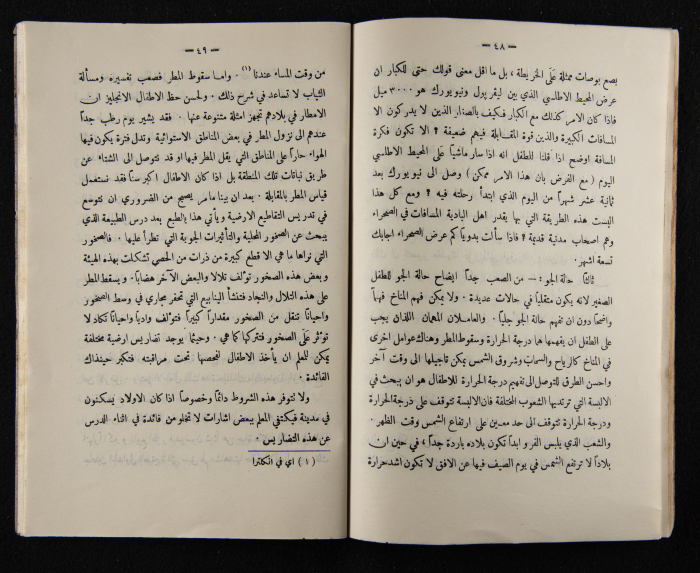 — ٤٨ —
بضع بوصات ممثلة عَلَى الخريطة ، بل ما اقل معنى قولك حتى للكبار ان
عرض المحيط الاطلسي الذي بين ليفربول ونيويورك هو ٣٠٠٠ ميل
فاذا كان الامر كذلك مع الكبار فكيف بالصغار الذين لا يدركون الا
المسافات الكبيرة والذين قوة المقابلة فيهم ضعيفة ؟ الا تكون فكرة
المسافة اوضح اذا قلنا للطفل انه اذا سار ماشيًا عَلَى المحيط الاطلسي
اليوم ( مع الفرض بان هذا الامر ممكن ) وصل الى نيويورك بعد
ثمانية عشر شهرًا من اليوم الذي ابتدأ رحلته فيه ؟ ومع كل هذا
اليست هذه الطريقة التي بها يقدر اهل البادية المسافات في الصحراء
وهم اصحاب مدنية قديمة ؟ فاذا سألت بدويًا كم عرض الصحراء اجابك
تسعة اشهر .
ثالثًا حالة الجو : — من الصعب جدًا ايضاح حالة الجو للطفل
الصغير لانه يكون متقلبًا في حالات عديدة . ولا يمكن فهم المناخ فهمًا
واضحًا دون ان تفهم حالة الجو جليًا . والعاملان المهمان اللذان يجب
عَلَى الطفل ان يفهمهما هما درجة الحرارة وسقوط المطر وهناك عوامل اخرى
في المناخ كالرياح والسحاب وشروق الشمس يمكن تاجيلها الى وقت آخر
واحسن الطرق للتوصل الى تفهيم درجة الحرارة للاطفال هو ان يبحث في
الالبسة التي ترتديها الشعوب المختلفة فان الالبسة تتوقف على درجة الحرارة
ودرجة الحرارة تتوقف الى حد معين على ارتفاع الشمس وقت الظهر .
والشعب الذي يلبس الفرو ابداً تكون بلاده باردة جداً ؛ في حين ان
بلاداً لا ترتفع الشمس في يوم الصيف فيها عن الافق لا تكون اشد حرارة
— ٤٩ —
من وقت المساء عندنا (١) . واما سقوط المطر فصعب تفسيره ومسألة
الثياب لا تساعد في شرح ذلك . ولحسن حظ الاطفال الانجليز ان
الامطار في بلادهم تجهز امثلة متنوعة عنها . فقد يشير يوم رطب جداً
عندهم الى نزول المطر في بعض المناطق الاستوائية وتدل فترة يكون فيها
الهواء حاراً على المناطق التي يقل المطر فيها او قد نتوصل الى الشتاء عن
طريق نباتات تلك المنطقة بل اذا كان الاطفال اكبر سناً فقد نستعمل
قياس المطر بالمقابلة . بعد ان بينا ما مر يصبح من الضروري ان نتوسع
في تدريس التقاطيع الارضية ويأتي هذا بالطبع بعد درس الطبيعة الذي
يبحث عن الصخور المحلية والتأثيرات الجوية التي تطرأ عليها . فالصخور
التي نراها ما هي الا قطع كبيرة من ذرات من الحصى تشكلت بهذه الهيئة
وبعض هذه الصخور تؤلف تلالا والبعض الآخر هضاباً . ويسقط المطر
على هذه التلال والنجاد فتنشأ الينابيع التي تحفر مجاري في وسط الصخور
واحيانًا تنقل من الصخور مقداراً كبيراً فتؤلف وادياً واحياناً تكاد لا
تؤثر عَلَى الصخور فتتركها كما هي . وحيثما يوجد تضاريس ارضية مختلفة
يمكن للمعلم ان يأخذ الاطفال لفحصها تحت مراقبته فتكبر حينذاك
الفائدة .
ولا تتوفر هذه الشروط دائمًا وخصوصًا اذا كان الاولاد يسكنون
في مدينة فيكتفي المعلم ببعض اشارات لا تخلو من فائدة في اثناء الدرس
عن هذه التضاريس .
( ١ ) اي في انكلترا